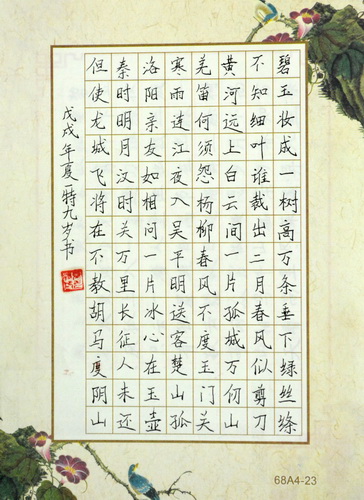 碧玉妆成一树高万条垂下绿丝绦
不知细叶谁裁出二月春风似剪刀
黄河远上白云间一片孤城万仞山
羌笛何须怨杨柳春风不度玉门关
寒雨连江夜入吴平明送客楚山孤
洛阳亲友如相问一片冰心在玉壶
秦时明月汉时关万里长征人未还
但使龙城飞将在不教胡马度阴山
戊戌年夏一特九岁书
68A4-23